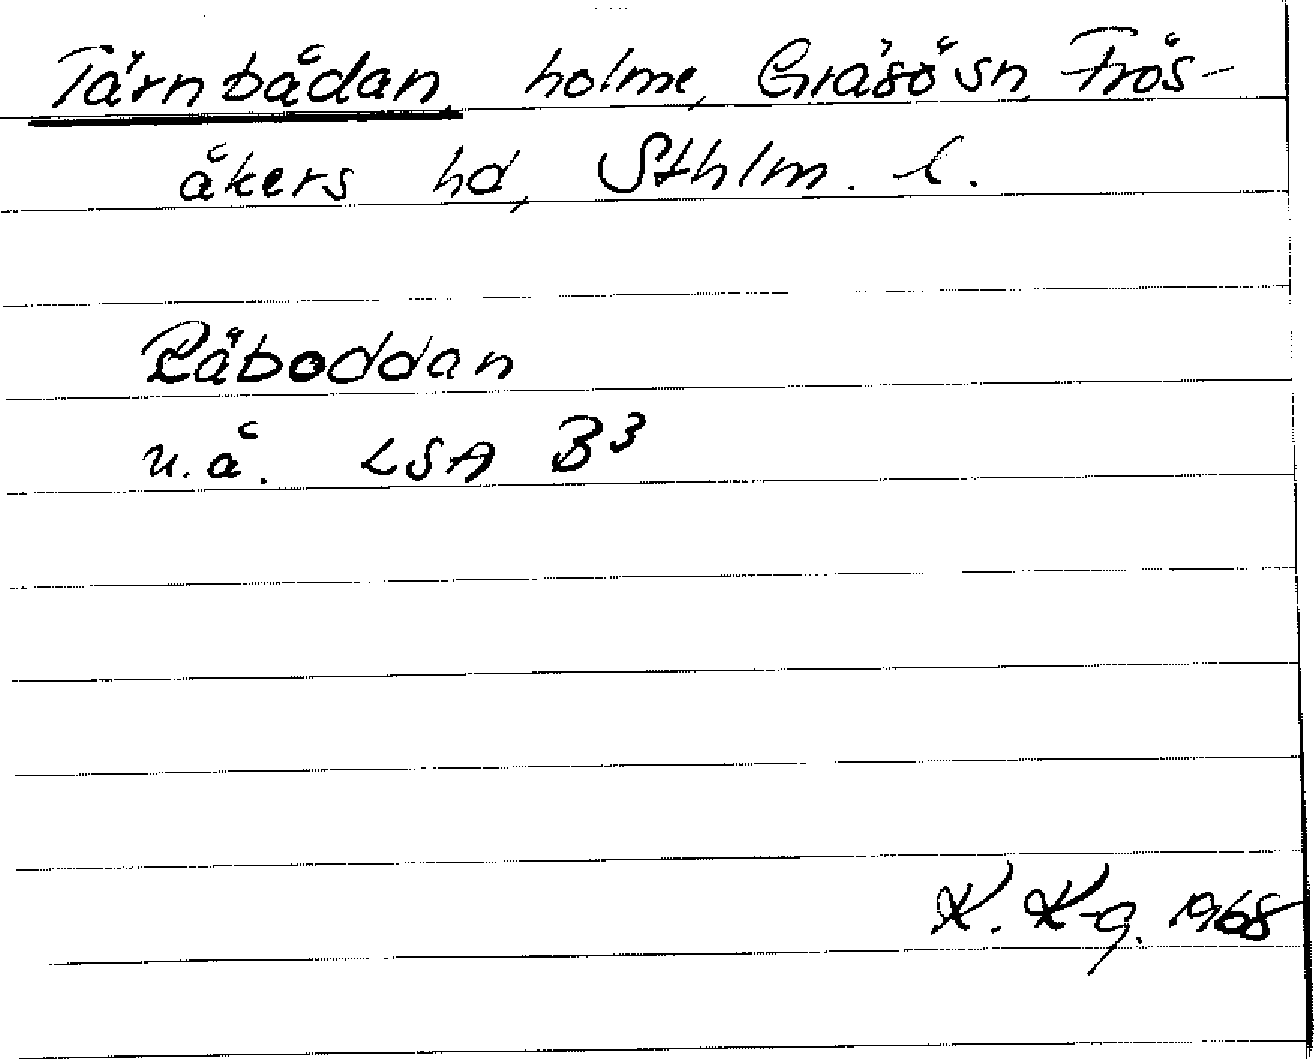 Tärnbådan, holme, Gräsö sn, Frös-
åkers hd, Sthlm. l.
Räboddan
u.å. LSA B3
K. K-g. 1968